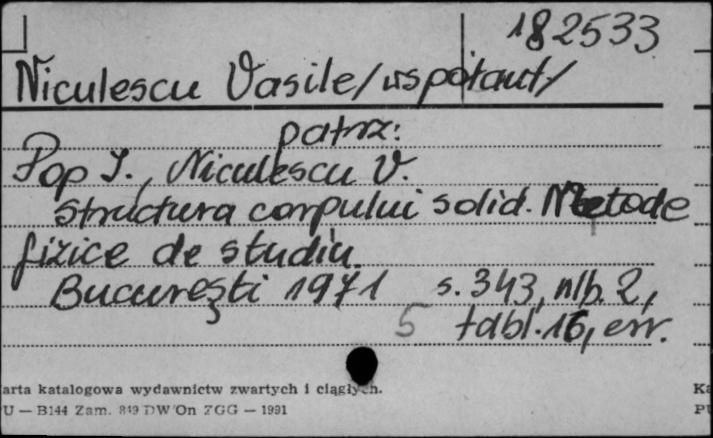 182533
Niculescu Vasile/współaut/
patrz:
Pop I., Niculescu V.
Structura corpului solid. Metode
fizice de studiu.
Bucureşti 1971 s. 343, nlb. 2,
5 tabl. 16, err.
arta katalogowa wydawnictw zwartych i ciągłych.
U — B144 Zam. 849 DW On ZGG — 1991